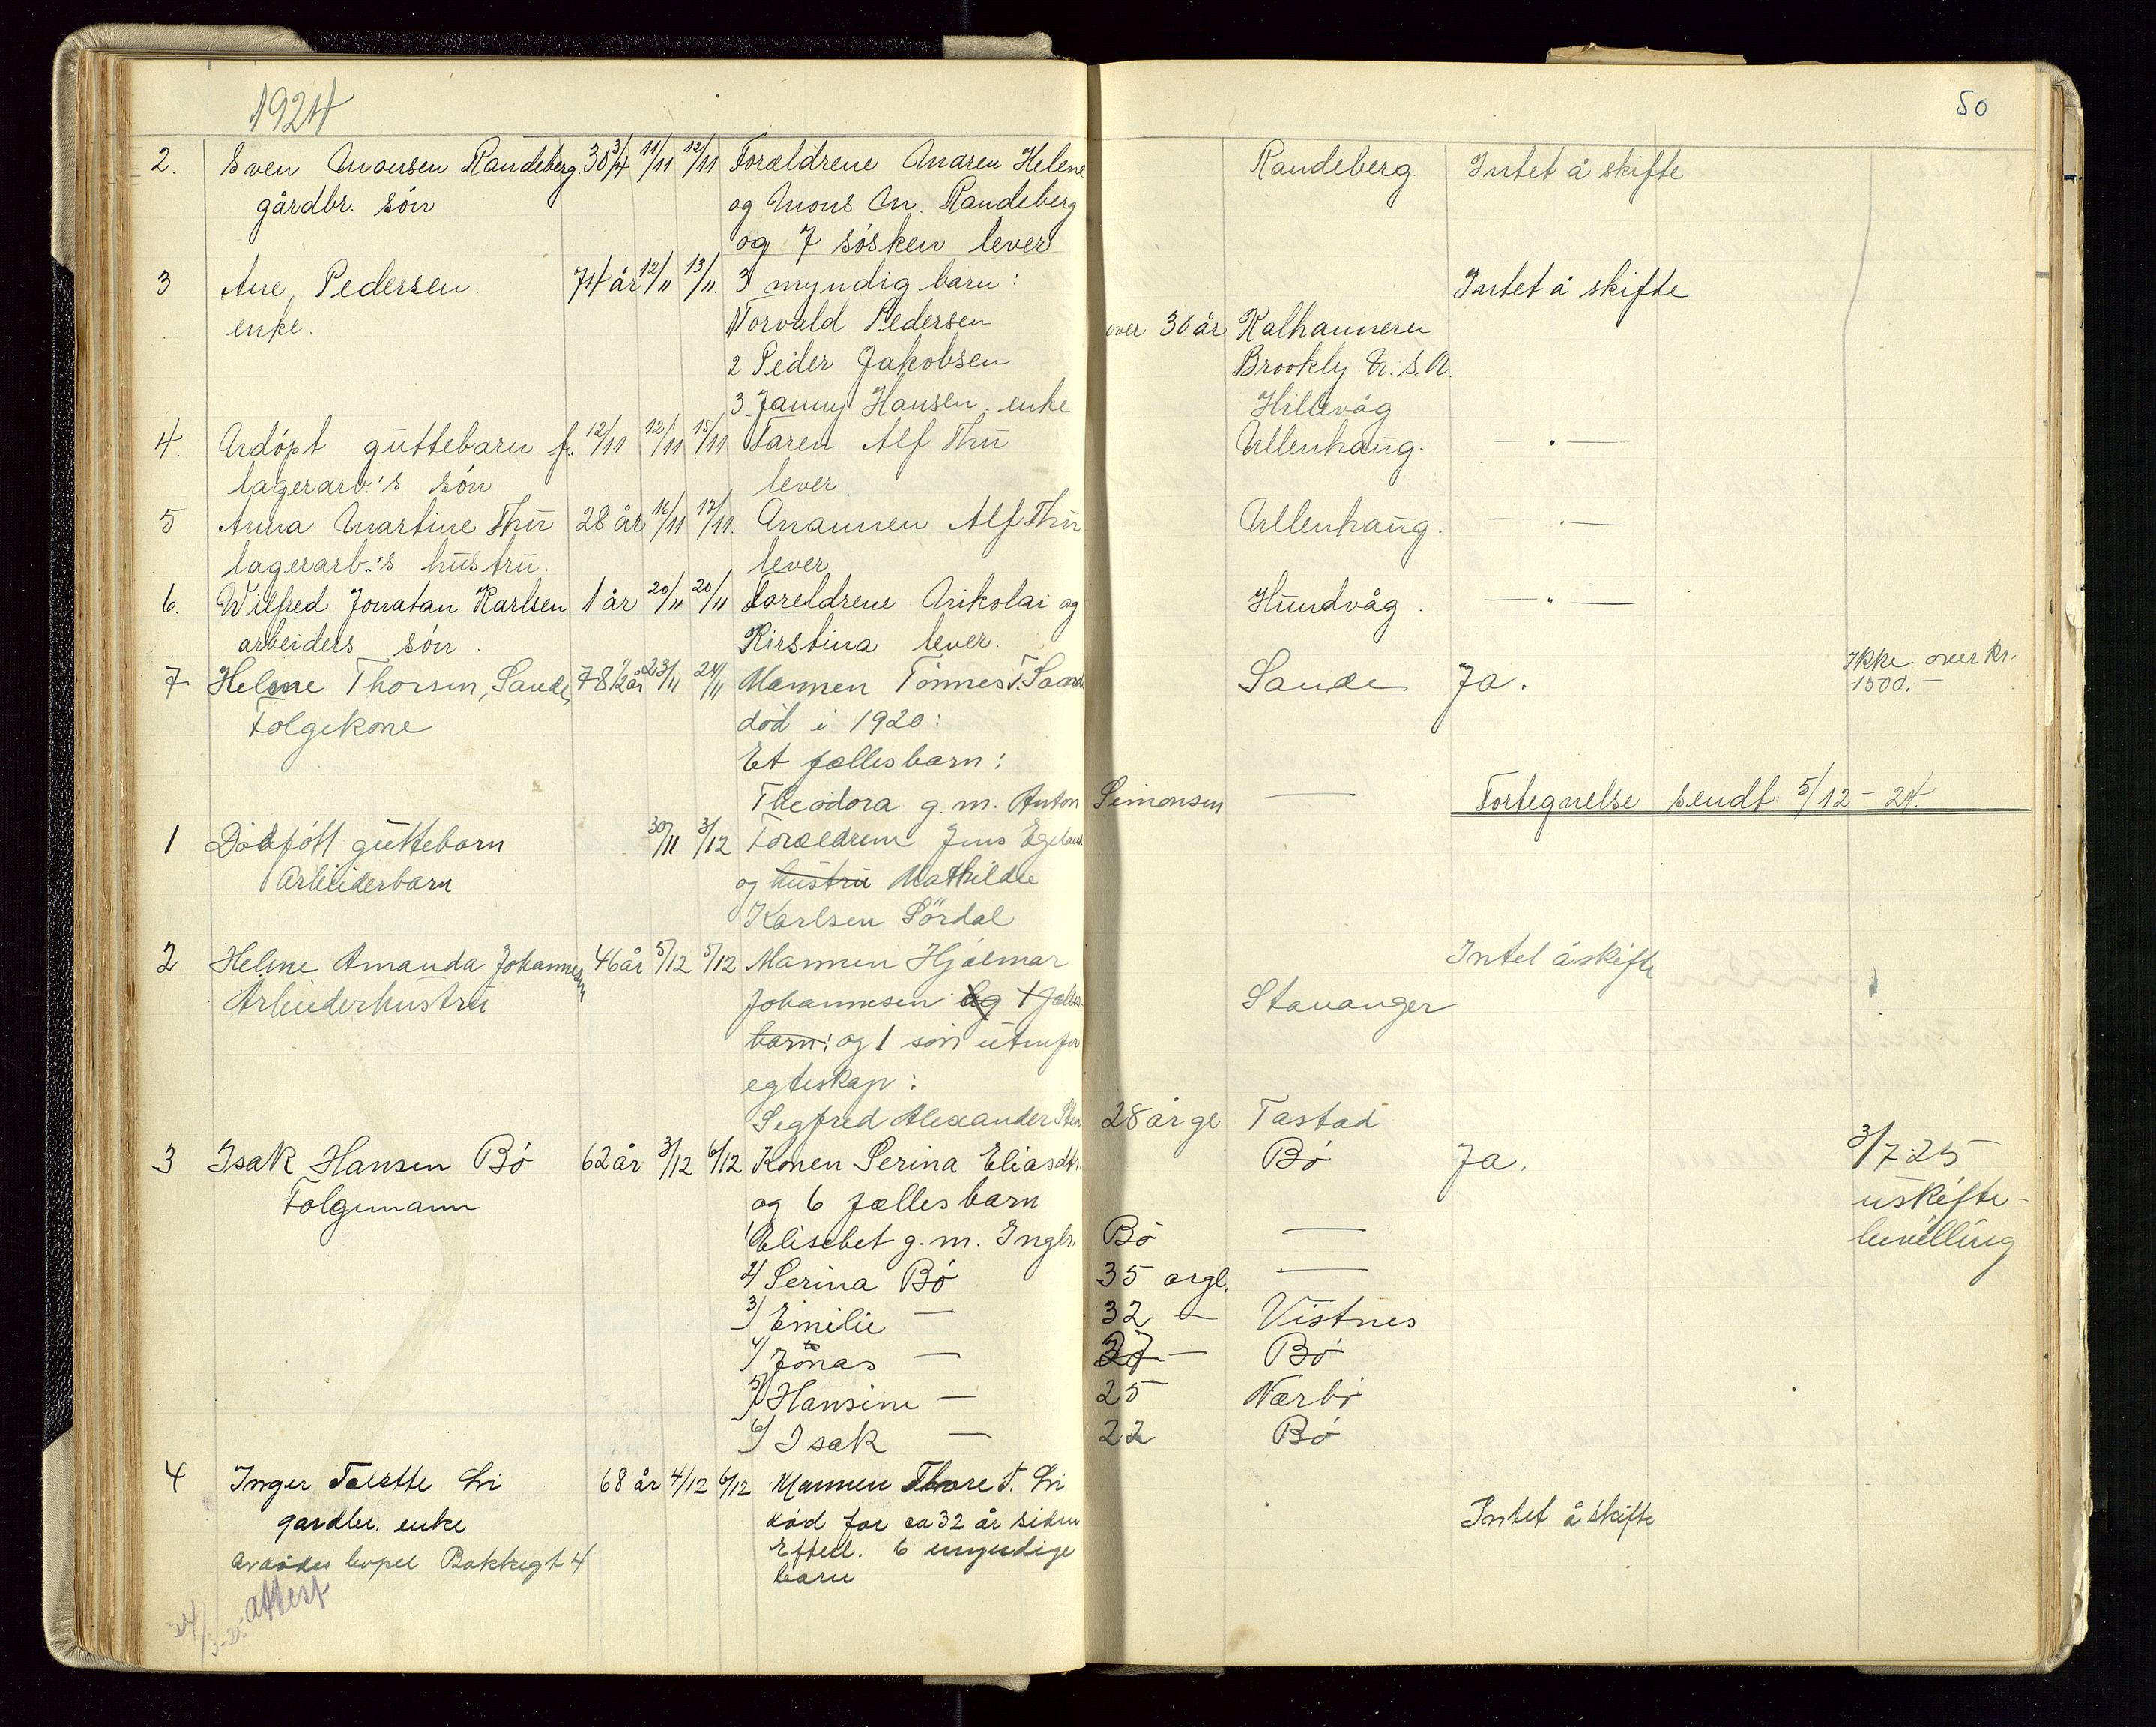 1924
50
2. Sven Monsen Randeberg 30 3/4 11/11 12/11 Forældrene Maren Helene Randeberg. Intet å skifte
gårdbr. søn og Mons M. Randeberg
og 7 søsken lever
3 Ane Pedersen. 74 år 12/11 13/11. 3 myndig barn: Intet å skifte
enke. 1 Torvald Pedersen over 30 år Kalhammern
2 Peder Jakobsen Brookly U.S.A.
3. Janny Hansen enke Hillevåg
4. Udöpt guttebarn f. 12/11 12/11 15/11 Faren Alf Thu Ullenhaug. — " —
lagerarb.'s søn lever.
5 Anna Martine Thu 28 år 16/11 17/11. Mannen Alf Thu Ullenhaug. — " —
lagerarb.'s hustru. lever
6. Wilfred Jonatan Karlsen 1 år 20/11 20/11 Foreldrene Nikolai og Hundvåg. — " —
arbeiders søn. Kirstina lever.
7 Helene Thorsen, Sande, 78 1/2 år 23/11 24/11 Mannen Tönnes T. Sande Sande Ja. Ikke over kr. 1500.-
Følgekone død i 1920:
Et fælles barn:
Theodora g.m. Anton Simonsen — Fortegnelse sendt 5/12-24.
1 Dödfött guttebarn 30/11 3/12 Forældrene Jens Egeland
Arbeiderbarn og hustru Mathilde
Karlsen Sördal
2 Helene Amanda Johannesen 46 år 5/12 5/12 Mannen Hjalmar Intet å skifte
Arbeiderhustru Johannesen og 1 fælles Stavanger
barn: og 1 søn utenfor
egteskap:
Segfred Alexander Sten 28 år gl Tastad
3 Isak Hansen Bø 62 år 3/12 6/12 Konen Serina Eliasdtr. Bø Ja. 3/7 25
Følgemann og 6 fælles barn uskifte-
1/ Elisebet g.m. Ingbr. Bø — bevilling
2/ Serina Bø 35 årgl. —
3/ Emilie — 32 — Vistnes
4/ Jonas — 27 — Bø
5/ Hansine — 25 Nærbø
6/ Isak — 22 Bø
4 Inger Tolette Li 68 år 4/12 6/12 Mannen Thore T. Li
gardbr. enke død for ca 32 år siden Intet å skifte
Avdødes bopel Bakkegt 4 Efterl. 6 umyndige
barn
24/3-25 attest